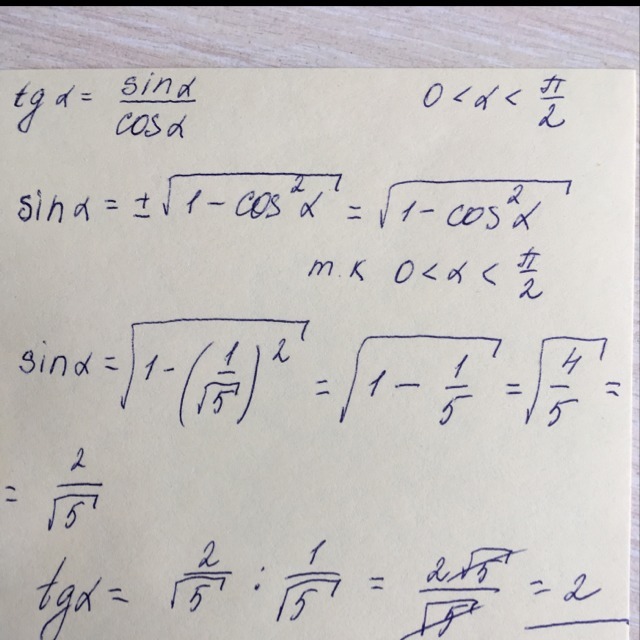 tg α = sin α / cos α    0 < α < π/2
sin α = ± √(1 - cos²α) = √(1 - cos²α)
т.к 0 < α < π/2
sin α = √(1 - (1/√5)²) = √(1 - 1/5) = √(4/5) =
= 2/√5
tg α = 2/√5 : 1/√5 = 2√5/√5 = 2